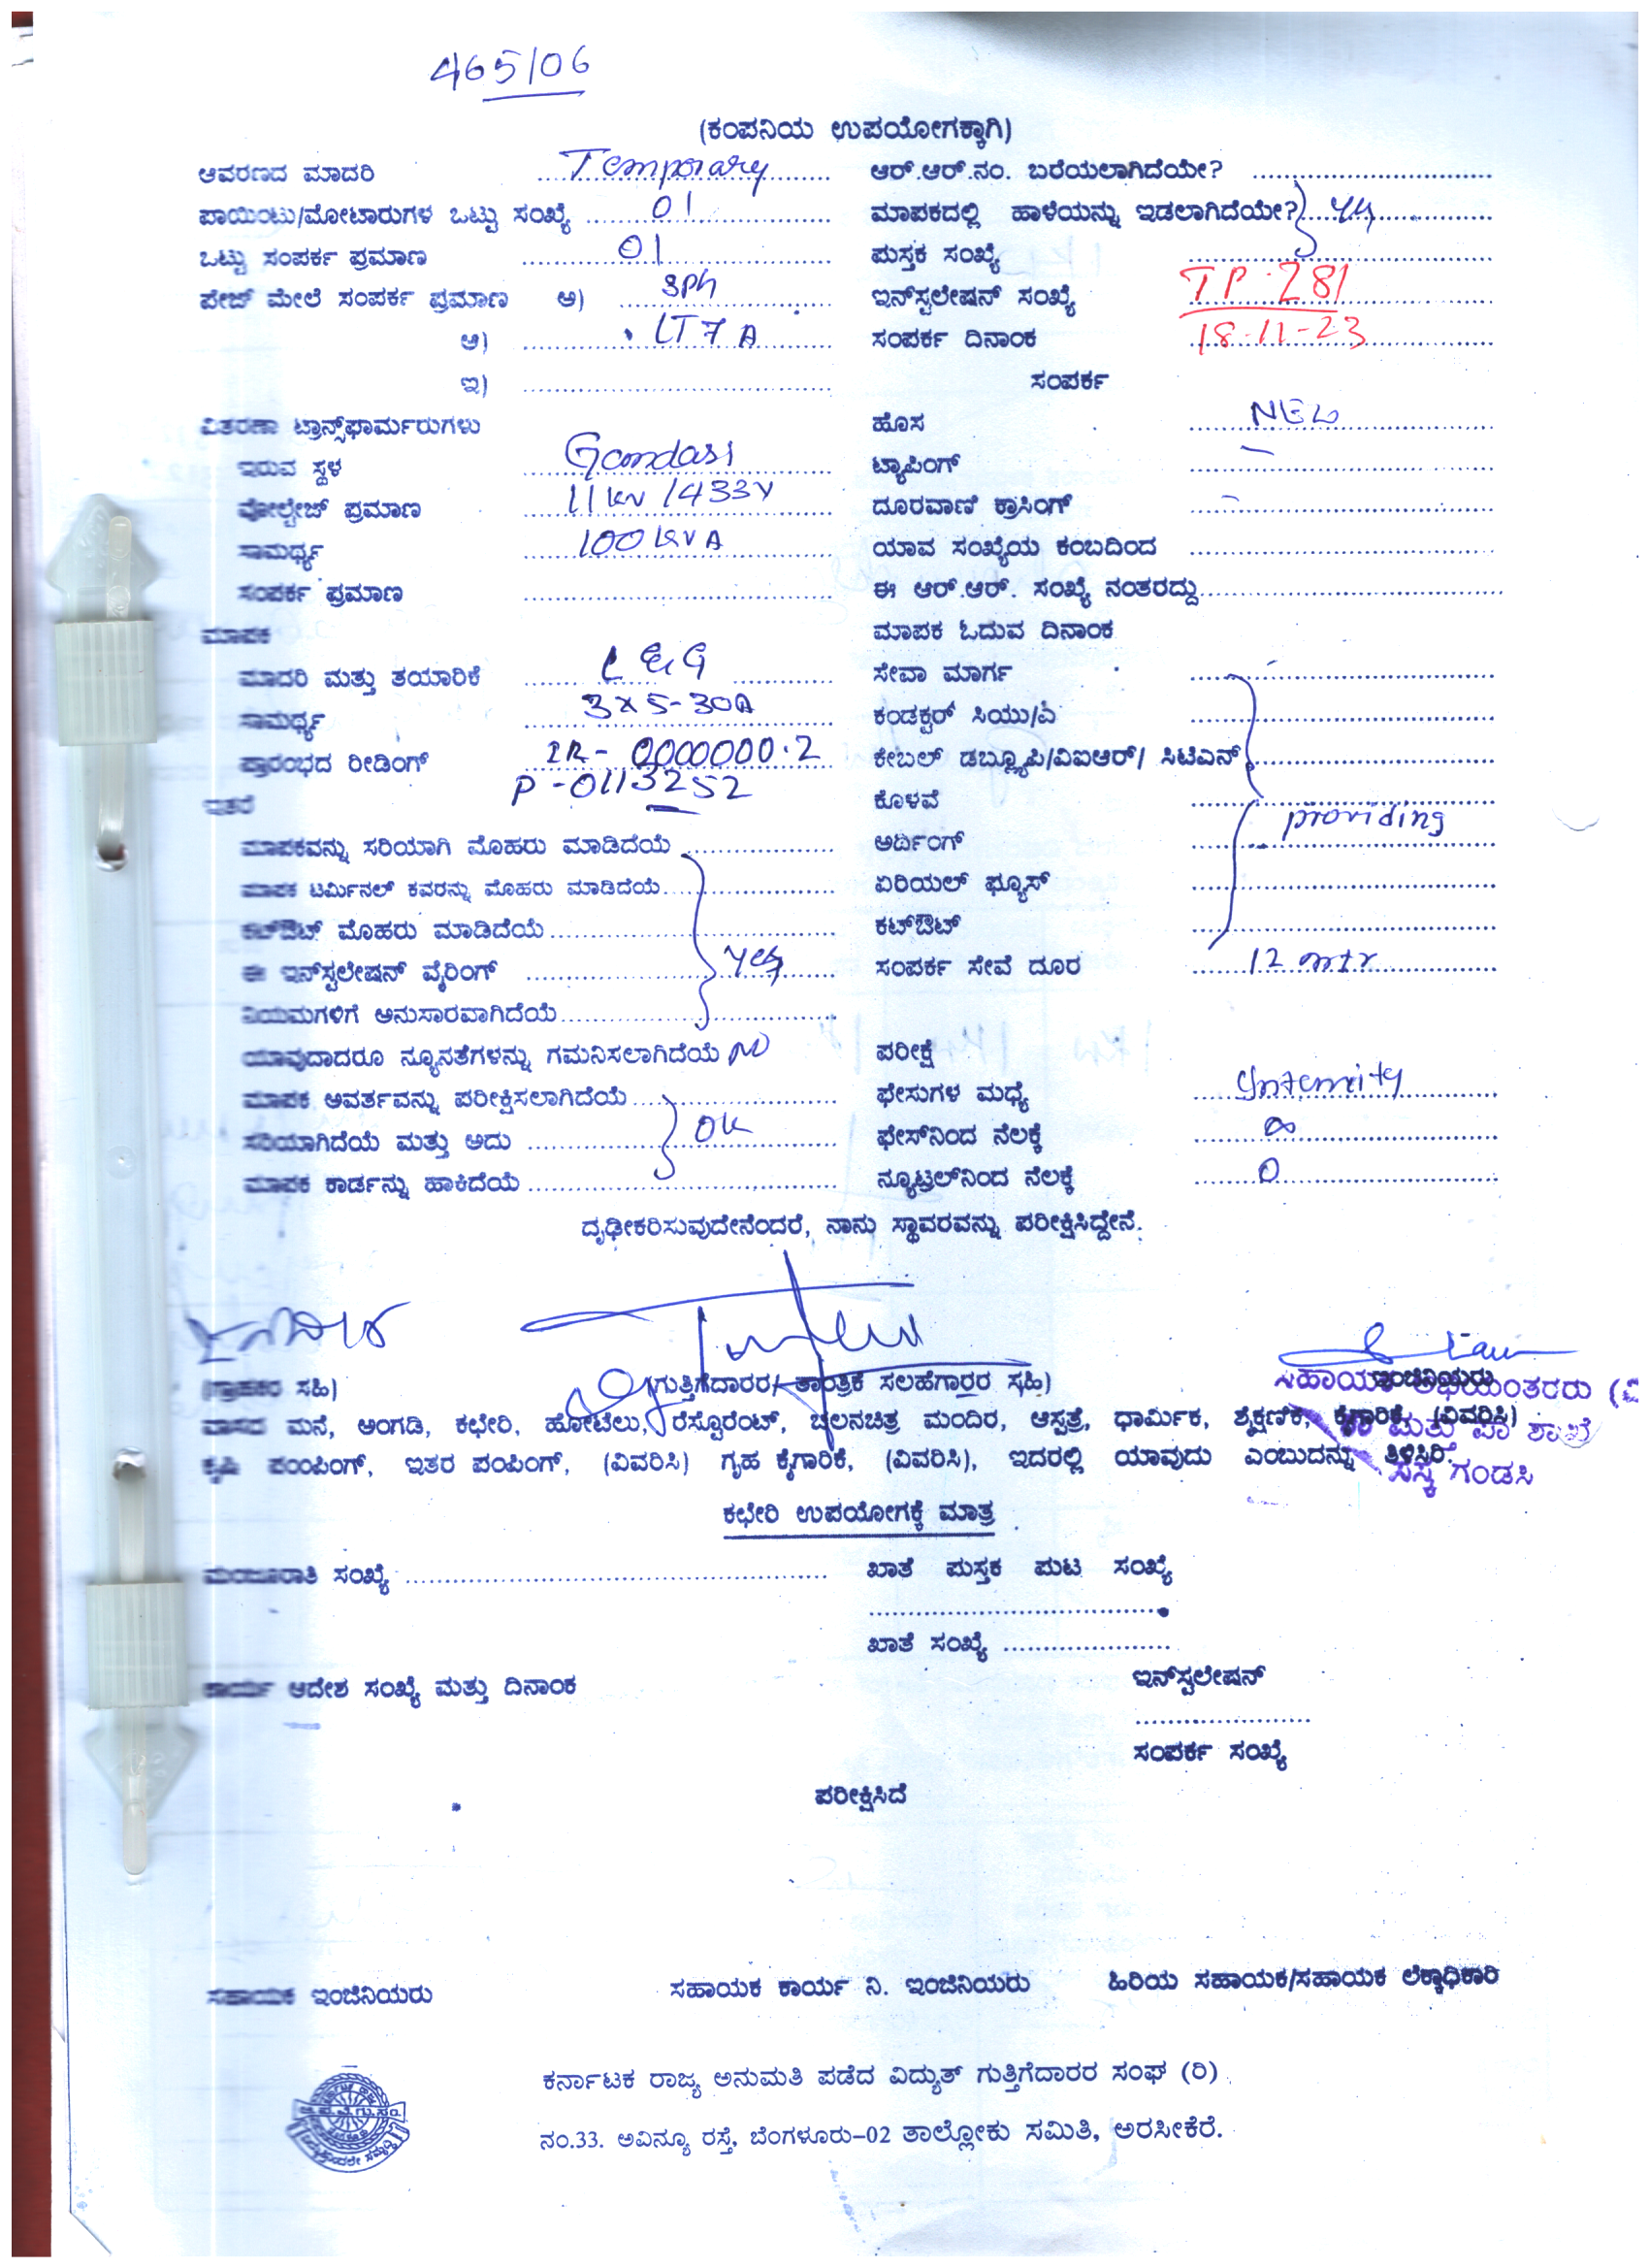 465/06
(ಕಂಪನಿಯ ಉಪಯೋಗಕ್ಕಾಗಿ)
ಆವರಣದ ಮಾದರಿ Temporary ಆರ್.ಆರ್.ನಂ. ಬರೆಯಲಾಗಿದೆಯೇ?
ಪಾಯಿಂಟು/ಮೋಟಾರುಗಳ ಒಟ್ಟು ಸಂಖ್ಯೆ 01 ಮಾಪಕದಲ್ಲಿ ಹಾಳೆಯನ್ನು ಇಡಲಾಗಿದೆಯೇ? yes
ಒಟ್ಟು ಸಂಪರ್ಕ ಪ್ರಮಾಣ 01 ಪುಸ್ತಕ ಸಂಖ್ಯೆ
ಪೇಜ್ ಮೇಲೆ ಸಂಪರ್ಕ ಪ್ರಮಾಣ ಅ) 3Ph ಇನ್‌ಸ್ಟಲೇಷನ್ ಸಂಖ್ಯೆ TP-281
ಆ) LT7A ಸಂಪರ್ಕ ದಿನಾಂಕ 18-11-23
ಇ) ಸಂಪರ್ಕ
ವಿತರಣಾ ಟ್ರಾನ್ಸ್‌ಫಾರ್ಮರುಗಳು ಹೊಸ NEW
ಇರುವ ಸ್ಥಳ Gandasi ಟ್ಯಾಪಿಂಗ್
ವೋಲ್ಟೇಜ್ ಪ್ರಮಾಣ 11kv/433V ದೂರವಾಣಿ ಕ್ರಾಸಿಂಗ್ –
ಸಾಮರ್ಥ್ಯ 100kVA ಯಾವ ಸಂಖ್ಯೆಯ ಕಂಬದಿಂದ
ಸಂಪರ್ಕ ಪ್ರಮಾಣ ಈ ಆರ್.ಆರ್. ಸಂಖ್ಯೆ ನಂತರದ್ದು
ಮಾಪಕ ಮಾಪಕ ಓದುವ ದಿನಾಂಕ
ಮಾದರಿ ಮತ್ತು ತಯಾರಿಕೆ L&G ಸೇವಾ ಮಾರ್ಗ
ಸಾಮರ್ಥ್ಯ 3x5-30A ಕಂಡಕ್ಟರ್ ಸಿಯು/ಎ
ಪ್ರಾರಂಭದ ರೀಡಿಂಗ್ IR- 0000000.2 ಕೇಬಲ್ ಡಬ್ಲ್ಯೂಪಿ/ವಿಐಆರ್/ ಸಿಟಿಎನ್
P-0113252
ಇತರೆ ಕೊಳವೆ providing
ಮಾಪಕವನ್ನು ಸರಿಯಾಗಿ ಮೊಹರು ಮಾಡಿದೆಯೆ ಅರ್ದಿಂಗ್
ಮಾಪಕ ಟರ್ಮಿನಲ್ ಕವರನ್ನು ಮೊಹರು ಮಾಡಿದೆಯೆ ಏರಿಯಲ್ ಫ್ಯೂಸ್
ಕಟ್‌ಔಟ್ ಮೊಹರು ಮಾಡಿದೆಯೆ ಕಟ್‌ಔಟ್
ಈ ಇನ್‌ಸ್ಟಲೇಷನ್ ವೈರಿಂಗ್ yes ಸಂಪರ್ಕ ಸೇವೆ ದೂರ 12 mtr
ನಿಯಮಗಳಿಗೆ ಅನುಸಾರವಾಗಿದೆಯೆ
ಯಾವುದಾದರೂ ನ್ಯೂನತೆಗಳನ್ನು ಗಮನಿಸಲಾಗಿದೆಯೆ NO ಪರೀಕ್ಷೆ
ಮಾಪಕ ಅವರ್ತವನ್ನು ಪರೀಕ್ಷಿಸಲಾಗಿದೆಯೆ ಫೇಸುಗಳ ಮಧ್ಯೆ
ಸರಿಯಾಗಿದೆಯೆ ಮತ್ತು ಅದು OK ಫೇಸ್‌ನಿಂದ ನೆಲಕ್ಕೆ ∞
ಮಾಪಕ ಕಾರ್ಡನ್ನು ಹಾಕಿದೆಯೆ ನ್ಯೂಟ್ರಲ್‌ನಿಂದ ನೆಲಕ್ಕೆ 0
ದೃಢೀಕರಿಸುವುದೇನೆಂದರೆ, ನಾನು ಸ್ಥಾವರವನ್ನು ಪರೀಕ್ಷಿಸಿದ್ದೇನೆ.
(ಗ್ರಾಹಕರ ಸಹಿ) (ಗುತ್ತಿಗೆದಾರರ/ ತಾಂತ್ರಿಕ ಸಲಹೆಗಾರರ ಸಹಿ) ಇಂಜಿನಿಯರು
ಸಹಾಯಕ ಅಭಿಯಂತರರು
ವಾಸದ ಮನೆ, ಅಂಗಡಿ, ಕಛೇರಿ, ಹೋಟೆಲು, ರೆಸ್ಟೊರೆಂಟ್, ಚಲನಚಿತ್ರ ಮಂದಿರ, ಆಸ್ಪತ್ರೆ, ಧಾರ್ಮಿಕ, ಶೈಕ್ಷಣಿಕ, ಕೈಗಾರಿಕೆ, (ವಿವರಿಸಿ)
ಮತ್ತು ಪಾ ಶಾಖೆ
ಕೃಷಿ ಪಂಪಿಂಗ್, ಇತರ ಪಂಪಿಂಗ್, (ವಿವರಿಸಿ) ಗೃಹ ಕೈಗಾರಿಕೆ, (ವಿವರಿಸಿ), ಇದರಲ್ಲಿ ಯಾವುದು ಎಂಬುದನ್ನು ತಿಳಿಸಿರಿ.
ಗಂಡಸಿ
ಕಛೇರಿ ಉಪಯೋಗಕ್ಕೆ ಮಾತ್ರ
ಮಂಜೂರಾತಿ ಸಂಖ್ಯೆ ಖಾತೆ ಪುಸ್ತಕ ಪುಟ ಸಂಖ್ಯೆ
ಖಾತೆ ಸಂಖ್ಯೆ
ಕಾರ್ಯ ಆದೇಶ ಸಂಖ್ಯೆ ಮತ್ತು ದಿನಾಂಕ ಇನ್‌ಸ್ಟಲೇಷನ್
ಸಂಪರ್ಕ ಸಂಖ್ಯೆ
ಪರೀಕ್ಷಿಸಿದೆ
ಸಹಾಯಕ ಇಂಜಿನಿಯರು ಸಹಾಯಕ ಕಾರ್ಯ ನಿ. ಇಂಜಿನಿಯರು ಹಿರಿಯ ಸಹಾಯಕ/ಸಹಾಯಕ ಲೆಕ್ಕಾಧಿಕಾರಿ
ಕರ್ನಾಟಕ ರಾಜ್ಯ ಅನುಮತಿ ಪಡೆದ ವಿದ್ಯುತ್ ಗುತ್ತಿಗೆದಾರರ ಸಂಘ (ರಿ)
ನಂ.33. ಅವಿನ್ಯೂ ರಸ್ತೆ, ಬೆಂಗಳೂರು-02 ತಾಲ್ಲೋಕು ಸಮಿತಿ, ಅರಸೀಕೆರೆ.